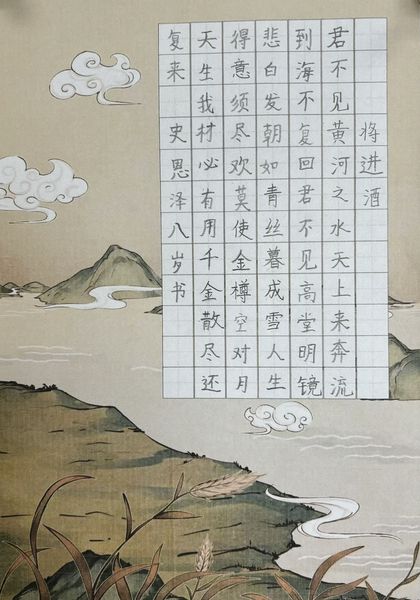 将进酒
君不见黄河之水天上来奔流
到海不复回君不见高堂明镜
悲白发朝如青丝暮成雪人生
得意须尽欢莫使金樽空对月
天生我材必有用千金散尽还
复来 史恩泽八岁书